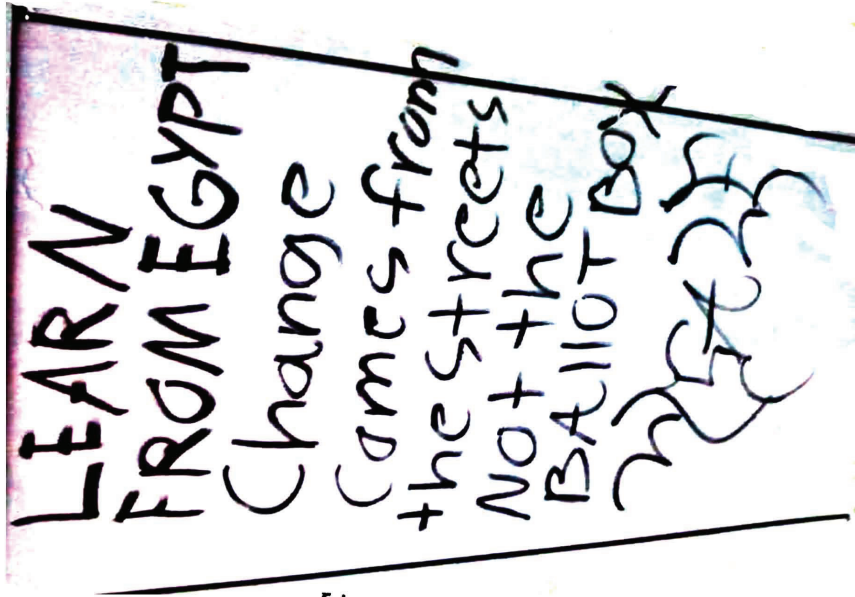 LEARN
FROM EGYPT
Change
Comes from
the streets
Not the
BAllOT BOX